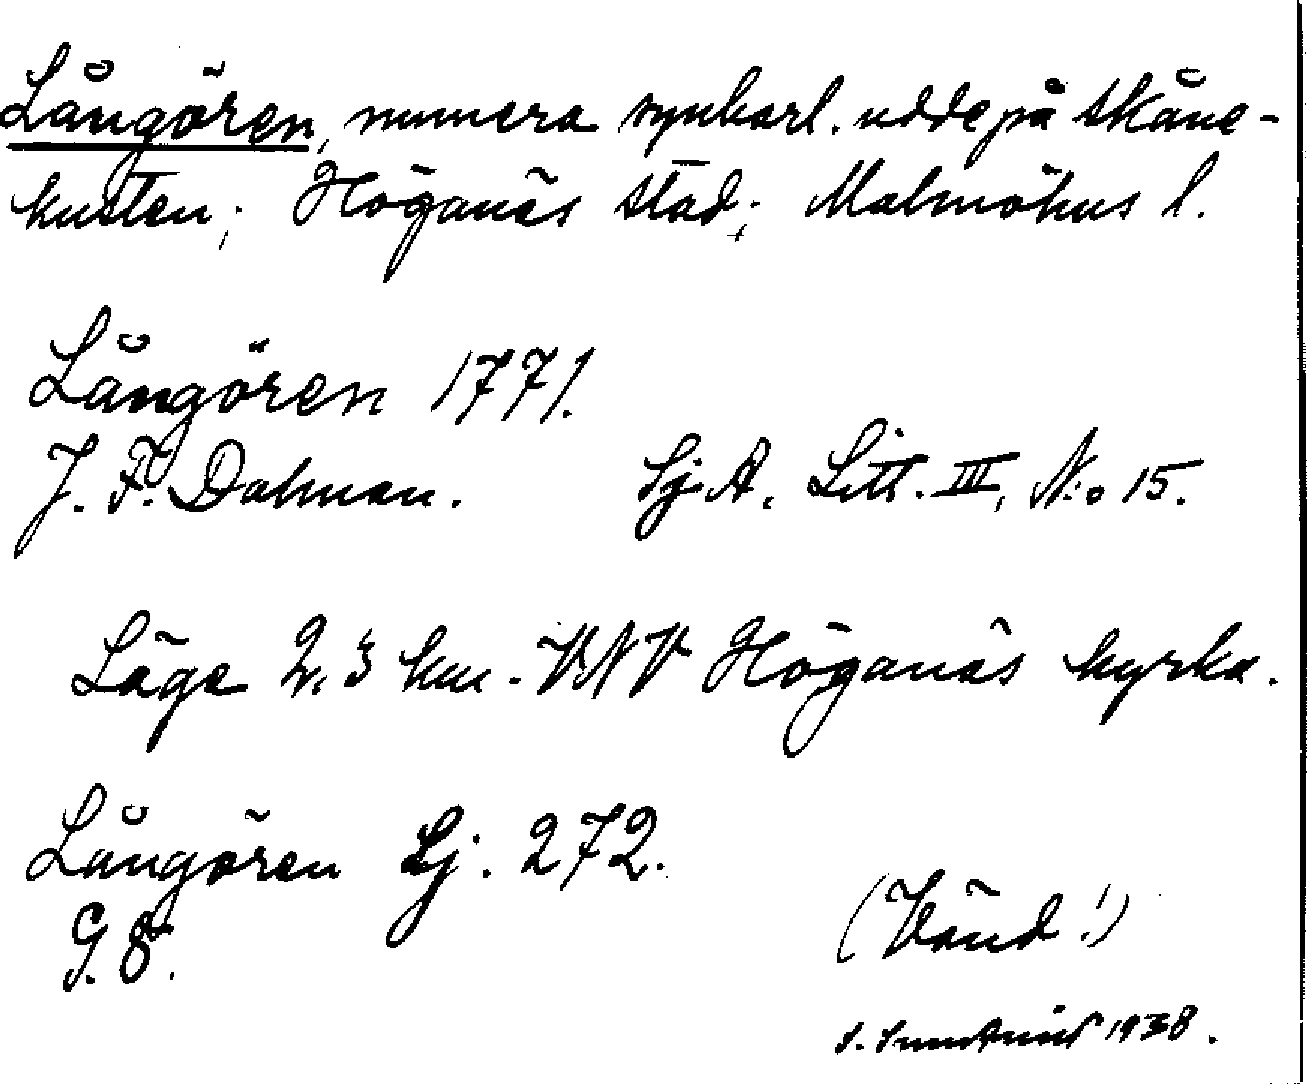 Långören, numera synbarl. udde på skåne-
kusten; Höganäs stad; Malmöhus l.
Långören 1771.
J. F. Dalman. Sj. A. Litt. III, N:o 15.
Läge 2,3 km. VNV Höganäs kyrka.
Långören Sj. 272.
G. 8.
(Vänd!)
S. 1938.